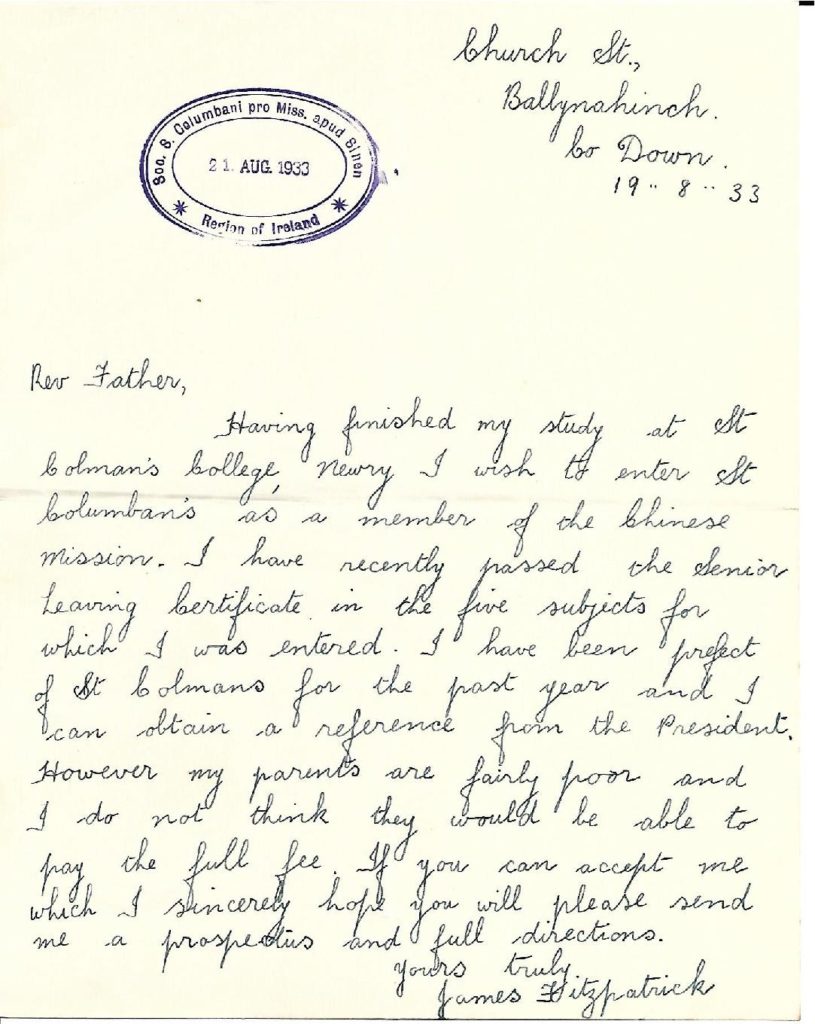 Church St.,
Ballynahinch.
Co Down.
19 .. 8 .. 33
Soc. S. Columbani pro Miss. apud Sinen
21. AUG. 1933
Region of Ireland
Rev Father,
Having finished my study at St
Colman's College, Newry I wish to enter St
Columban's as a member of the Chinese
Mission. I have recently passed the Senior
Leaving Certificate in the five subjects for
which I was entered. I have been prefect
of St Colmans for the past year and I
can obtain a reference from the President.
However my parents are fairly poor and
I do not think they would be able to
pay the full fee. If you can accept me
which I sincerely hope you will please send
me a prospectus and full directions.
Yours truly
James Fitzpatrick